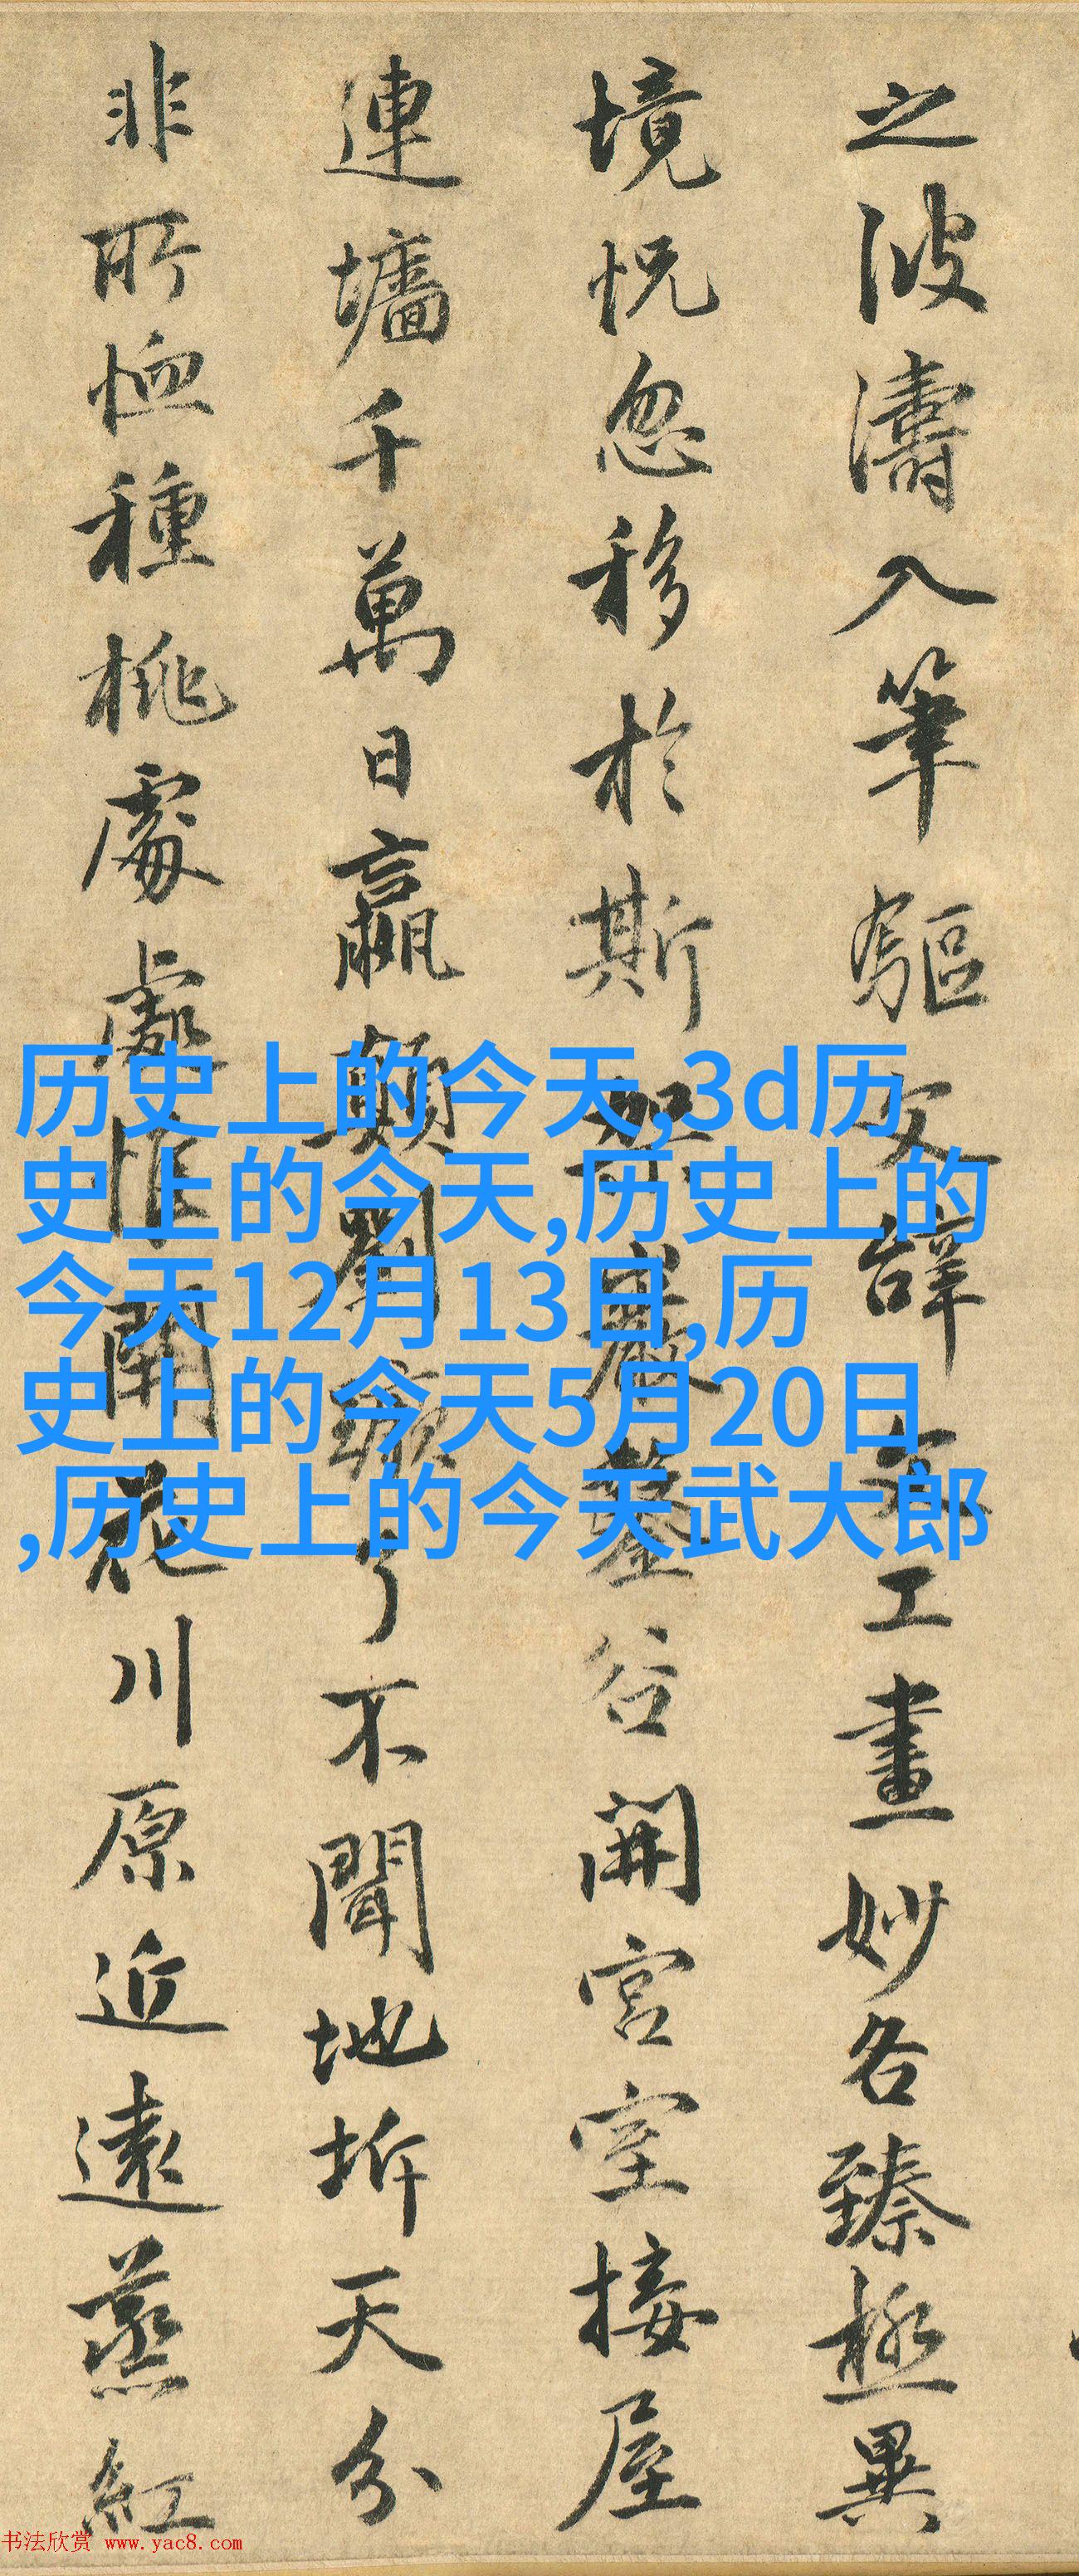 之波濤入筆驅文辭文工畫妙各臻極異
境恍忽移於斯架巖鑿谷開宮室接屋
連墻千萬日嬴顛劉蹶了不聞地坼天分
非所恤種桃處處惟開花川原近遠蒸紅
历史上的今天,3d历
史上的今天,历史上的
今天12月13日,历
史上的今天5月20日
,历史上的今天武大郎
书法欣赏 www.yac8.com